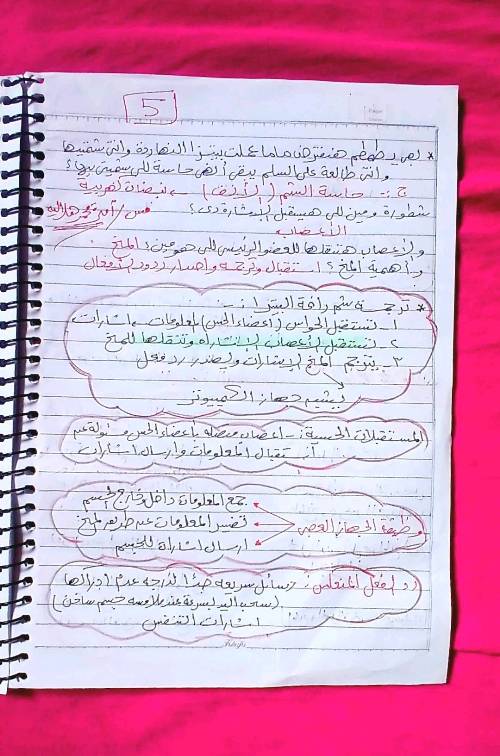 5
* لص يطمطم هنفترض ماما عملت بيتزا النهاردة وانتى شمتيها
وانتى طالعة على السلم يبقى أنهى حاسة للى شمتينى بيها؟
ج:- حاسة الشم (الأنف) - نبضات كهربية
شطورة ومين للى هيستقبل الإشارة دى؟
الأعصاب
والأعصاب هتنقلها للعضو الرئيسى للى هو مين: المخ
وأهمية المخ؟ استقبال وترجمة وإصدار ردود الأفعال
* ترجمة شم رائحة البيتزا:-
١- تستقبل الحواس (أعضاء الحس) المعلومات - إشارات
٢- تستقبل الأعصاب الإشارة وتنقلها للمخ
٣- يترجم المخ الإشارات ويصدر رد فعل
يشبه جهاز الكمبيوتر
المستقبلات الحسية:- أعصاب متصلة بأعضاء الحس مسئولة عن
استقبال المعلومات وإرسال إشارات
جمع المعلومات داخل وخارج الجسم
وظيفة الجهاز العصبى تفسير المعلومات عن طريق المخ
إرسال إشارة للجسم
رد الفعل المنعكس: رسائل سريعة جدًا لدرجة عدم إدراكها
(سحب اليد بسرعة عند ملامسة جسم ساخن)
إشارات التنفس